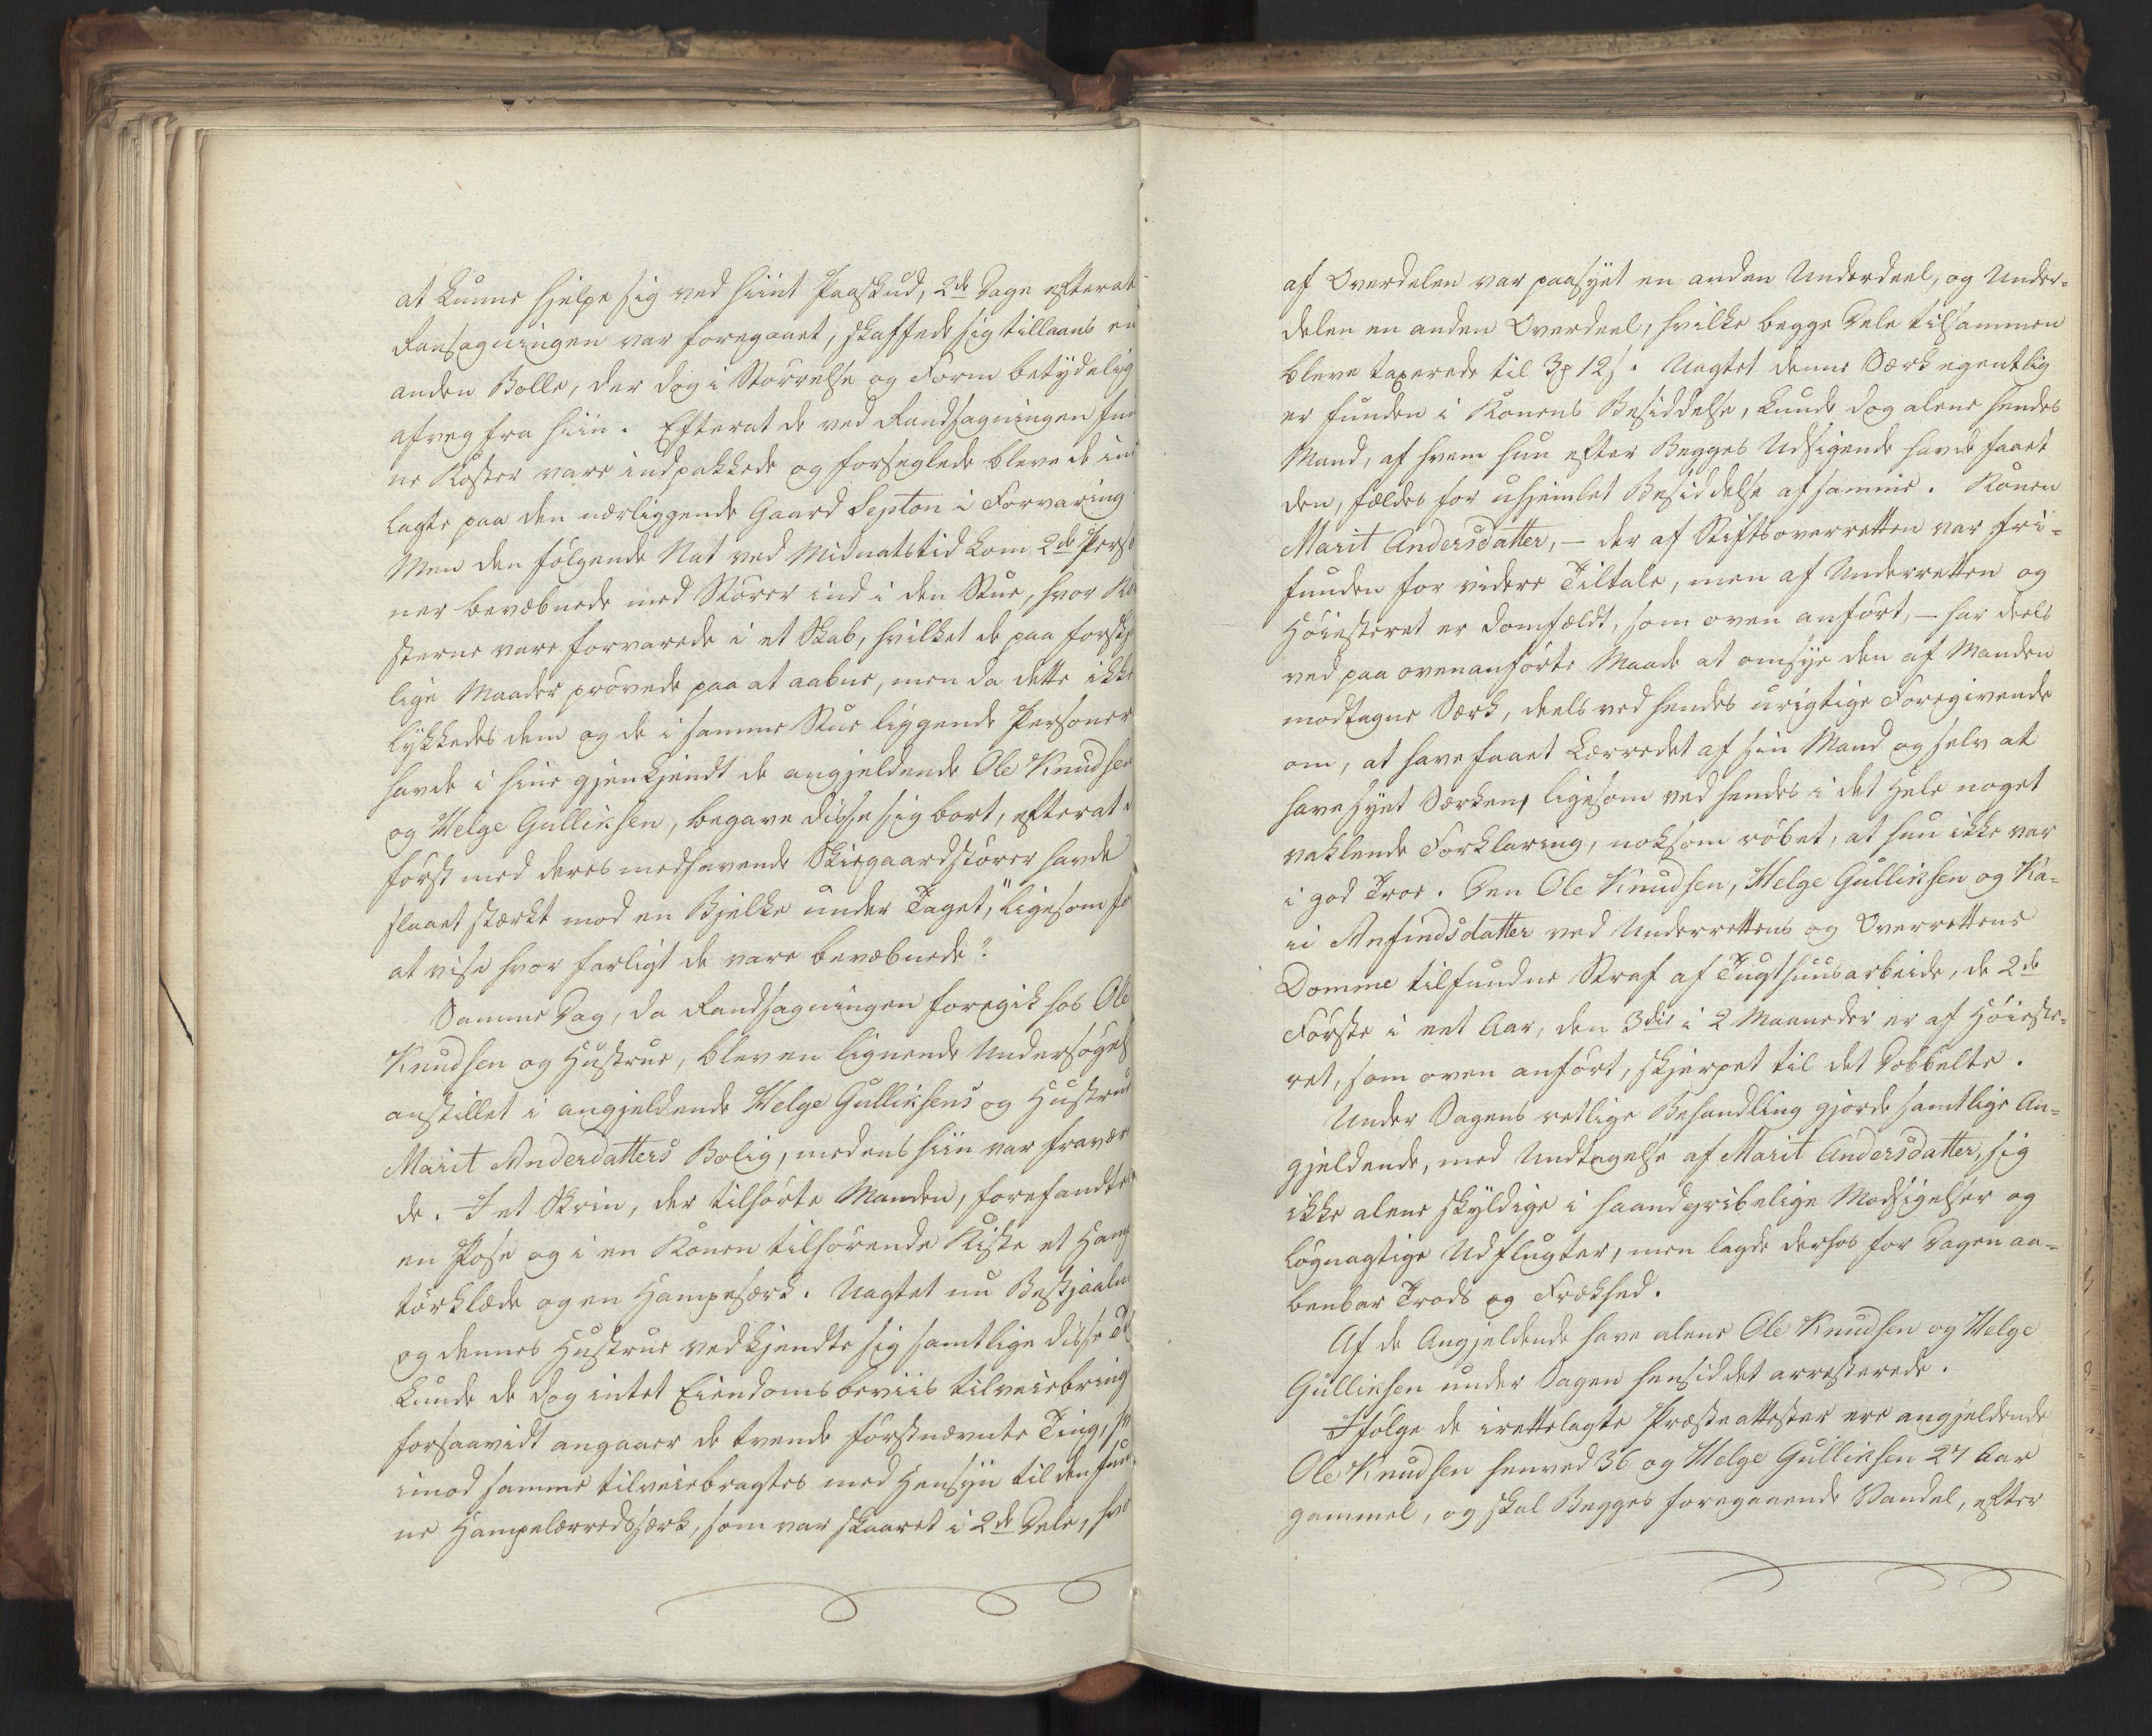 at kunne hjelpe sig ved hiint Paaskud, 2de Dage efterat
Ransagningen var foregaaet, skaffede sig tillaans en
anden Bolle, der dog i Störrelse og Form betydelig
afveg fra hiin. Efterat de ved Randsagningen fun
ne Koster vare indpakkede og forseglede bleve de ind
lagte paa den nærliggende Gaard Lepton i Forvaring
Men den fölgende Nat ved Midnatstid kom 2de Perso
ner bevæbnede med Störer ind i den Stue, hvor Ko
sterne vare forvarede i et Skab, hvilket de paa forskj
lige Maader prövede paa at aabne, men da dette ikke
lykkedes dem og de i samme Stue liggende Personer
havde i hine gjenkjendt de angjeldende Ole Knudsen
og Helge Gulliksen, begave disse sig bort, efterat d
först med deres medhavende Skiegaardstörer havde
slaaet stærkt mod en Bjelke under Taget, "ligesom fo
at vise hvor farligt de vare bevæbnede".
Samme Dag, da Randsagningen foregik hos Ole
Knudsen og Hustrue, blev en lignende Undersögels
anstillet i angjeldende Helge Gulliksens og Hustrue
Marit Anderdatters Bolig, medens hiin var fravær
de. I et Skrin, der tilhörte Manden, forefandtes
en Pose og i en Konen tilhörende Kiste et Hang
törklæde og en Hampesærk. Uagtet nu Bestjaalne
og dennes Hustrue vedkjendte sig samtlige disse T
kunde de dog intet Eiendomsbeviis tilveiebring
forsaavidt angaaer de tvende förstnævnte Ting, h
imod samme tilveiebragtes med Hensyn til den fun
ne Hampelærredssærk, som var skaaret i 2de Dele, hvo
af Overdelen var paasyet en anden Underdeel, og Under=
delen en anden Overdeel, hvilke begge Dele tilsammen
bleve taxerede til 3 ₰ 12 ſ. Uagtet denne Særk egentlig
er funden i Konens Besiddelse, kunde dog alene hendes
Mand, af hvem hun efter Begges Udsigende havde faaet
den, fældes for uhjemlet Besiddelse af samme. Konen
Marit Andersdatter, — der af Stiftsoverretten var fri=
funden for videre Tiltale, men af Underretten og
Höiesteret er domfældt, som oven anfört, — har deels
ved paa ovenanförte Maade at omsye den af Manden
modtagne Særk, deels ved hendes urigtige Foregivende
om, at have faaet Lærredet af sin Mand og selv at
have syet Særken, ligesom ved hendes i det Hele noget
vaklende Forklaring, noksom röbet, at hun ikke var
i god Troe. Den Ole Knudsen, Helge Gulliksen og Ka=
ri Anfindsdatter ved Underrettens og Overrettens
Domme tilfundne Straf af Tugthuusarbeide, de 2de
Förste i eet Aar, den 3die i 2 Maaneder er af Höieste=
ret, som oven anfört, skjerpet til det Dobbelte.
Under Sagens retlige Behandling gjorde samtlige An=
gjeldende, med Undtagelse af Marit Andersdatter, sig
ikke alene skyldige i haandgribelige Modsigelser og
lögnagtige Udflugter, men lagde derhos for Dagen aa=
benbar Trods og Frækhed.
Af de Angjeldende have alene Ole Knudsen og Helge
Gulliksen under Sagen hensiddet arresterede.
Ifölge de irettelagte Præsteattester ere angjeldende
Ole Knudsen henved 36 og Helge Gulliksen 27 Aar
gammel, og skal Begges foregaaende Vandel, efter